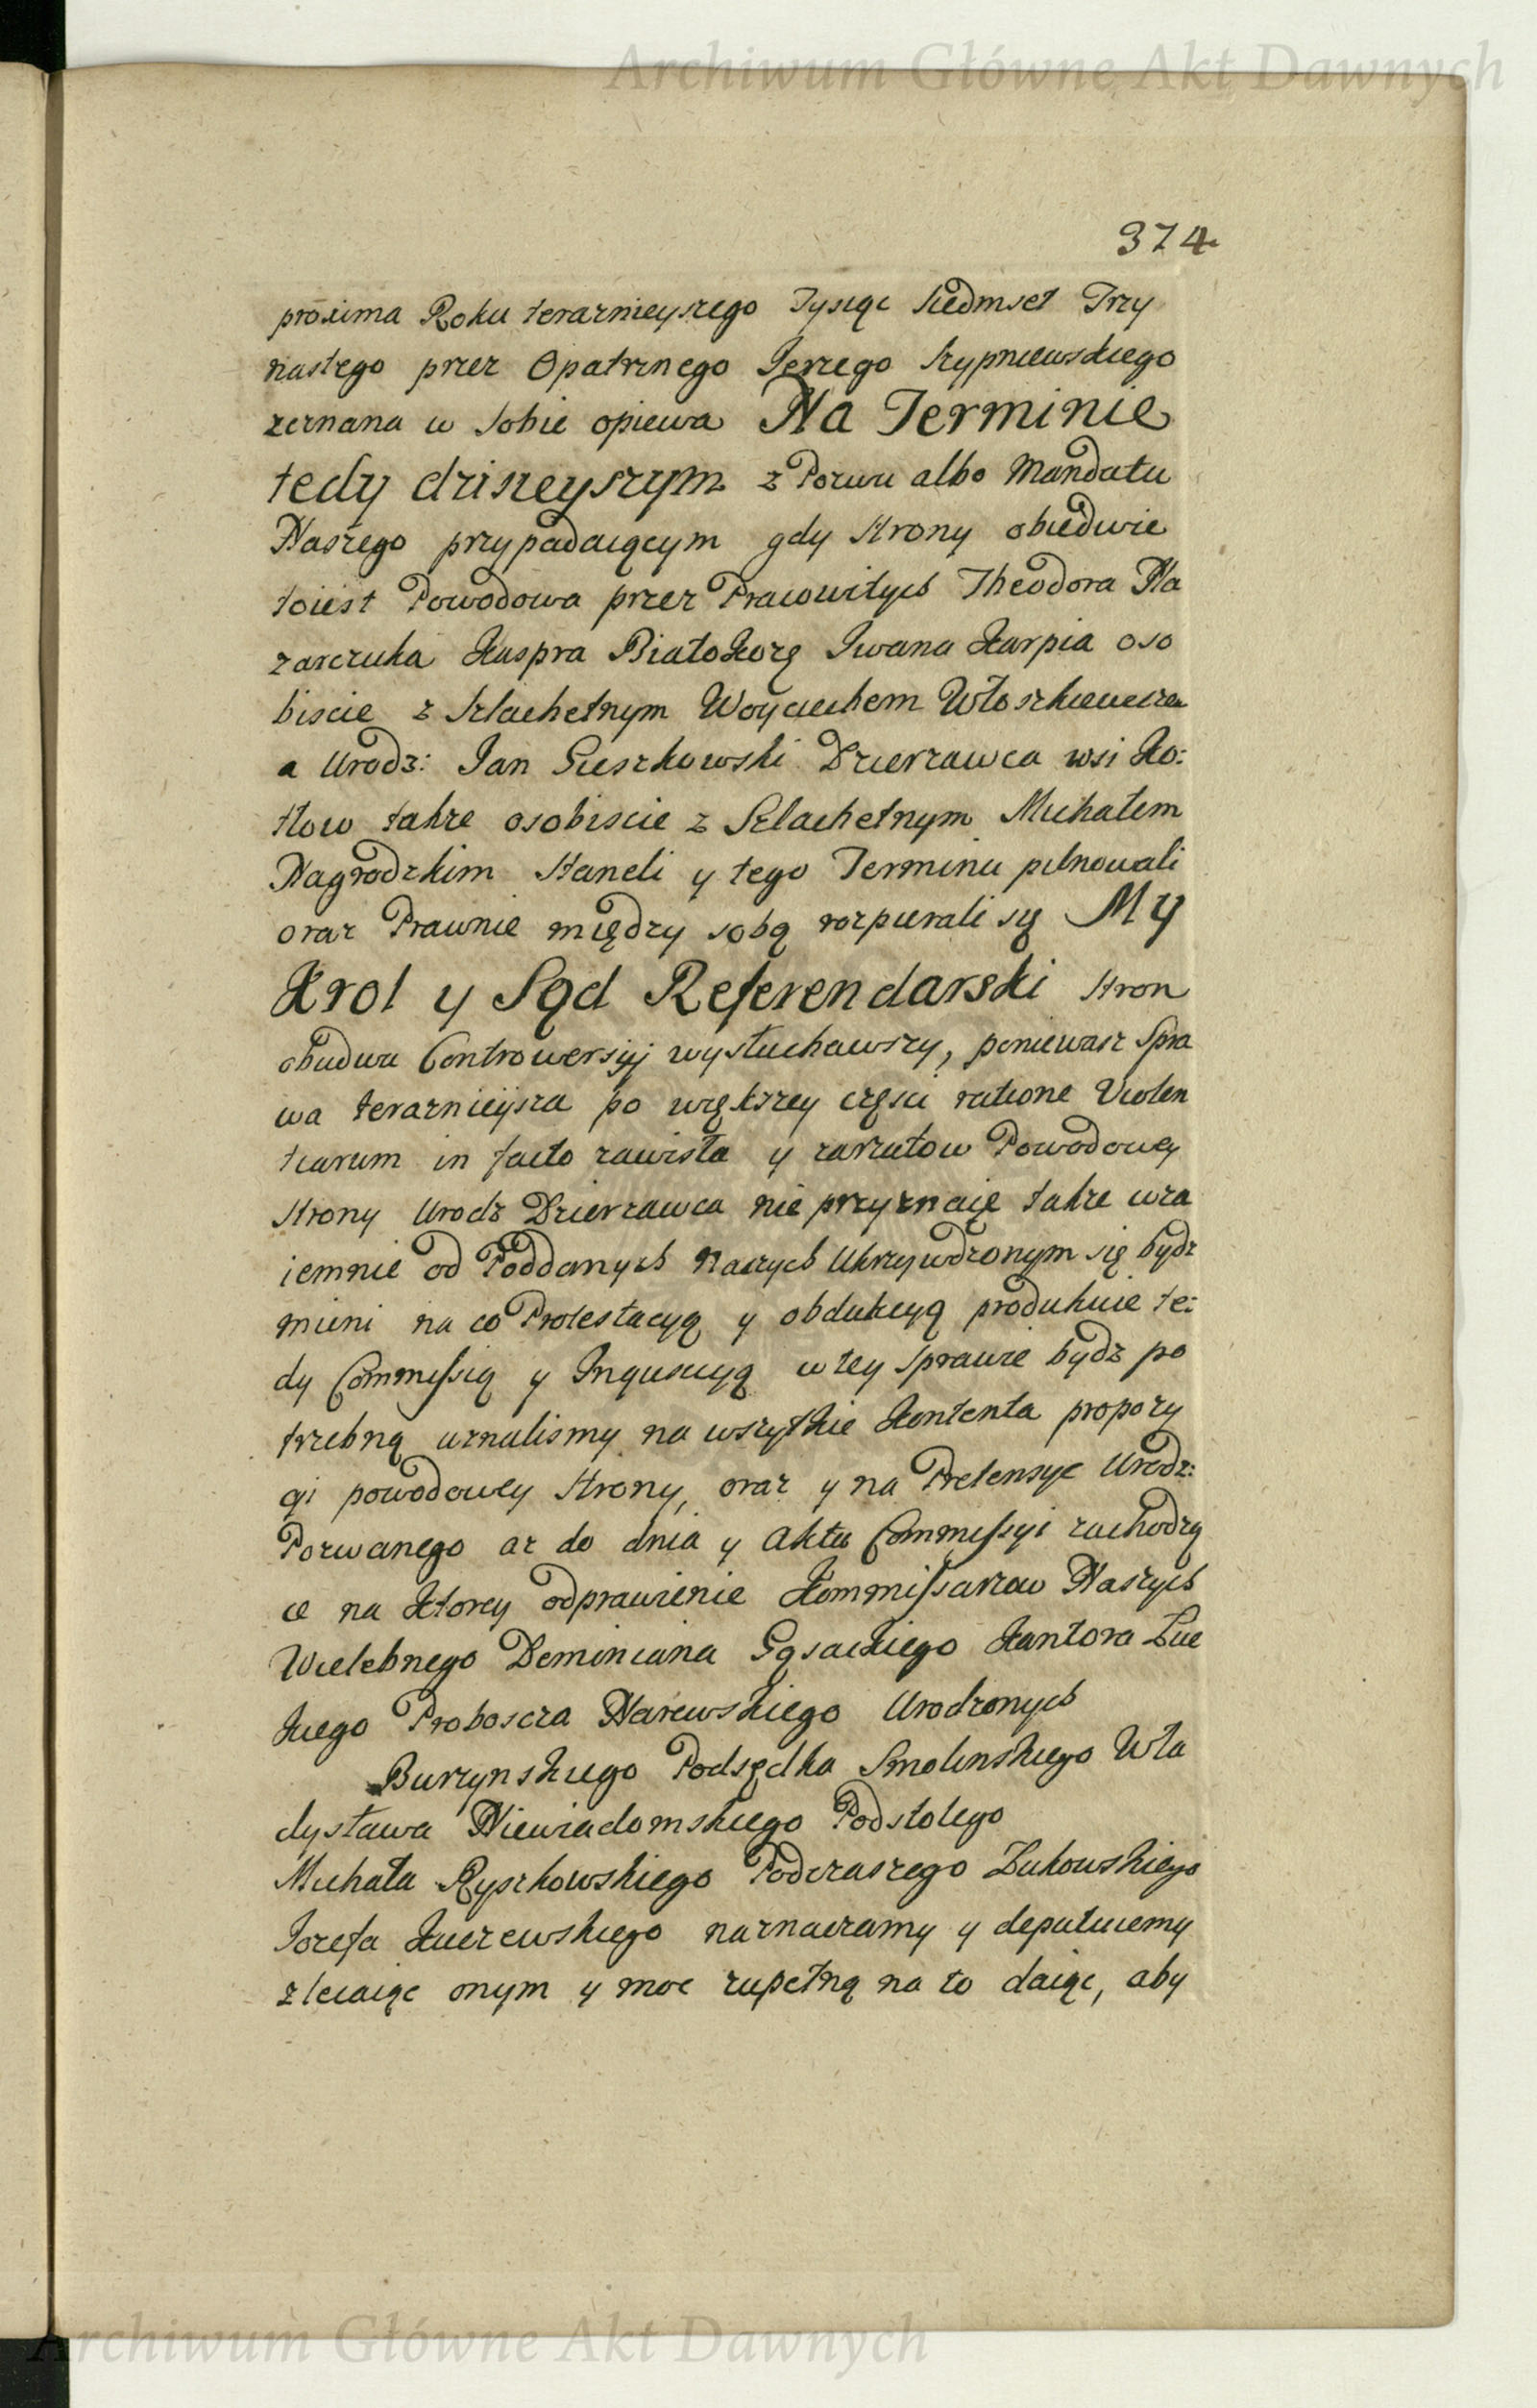 Archiwum Główne Akt Dawnych
374
proxima Roku teraznieyszego Tysiąc siedmset Trzy
nastego przez Opatrznego Jerzego Szypniewskiego
zeznana w sobie opiewa Na Terminie
tedy dzisieyszym z Pozwu albo Mandatu
Naszego przypadaiącym gdy strony obiedwie
toiest Powodowa przez Pracowitych Theodora Na
zarczuka Kaspra Białokozę Iwana Karpia oso
biscie z Szlachetnym Woyciechem Włoszkiewicze
a Urodz: Jan Gieszkowski Dzierzawca wsi Ko:
tłow takze osobiscie z Szlachetnym Michałem
Nagrodzkim staneli y tego Terminu pilnowali
oraz Prawnie między sobą rozpierali się My
Krol y Sąd Referendarski stron
obudwu Controwersyj wysłuchawszy, poniewasz Spra
wa teraznieysza po większey częsci ratione Violen
tiarum in facto zawisła y zarzutow Powodowey
strony Urodz Dzierzawca nie przyznaię takze wza
iemnie od Poddanych Naszych Ukrzywdzonym się bydz
mieni na co Protestacyą y obdukcyą produkuie te:
dy Commissią y Inquisicyą w tey sprawie bydz po
trzebną uznalismy na wszytkie Kontenta propozy
cyi powodowey strony, oraz y na Pretensye Urodz:
Pozwanego az do dnia y Aktu Commissyi zachodzą
ce na ktorey odprawienie Kommissarzow Naszych
Wielebnego Dominiana Gąsackiego Kantora Łuc
kiego Proboscza Narewskiego Urodzonych
Burzynskiego Podsędka Smolinskiego Wła
dysława Niewiadomskiego Podstolego
Michała Ryszkowskiego Podczaszego Łukowskiego
Jozefa Kuczewskiego naznaczamy y deputuiemy
zlecaiąc onym y moc zupełną na to daiąc, aby
Archiwum Główne Akt Dawnych